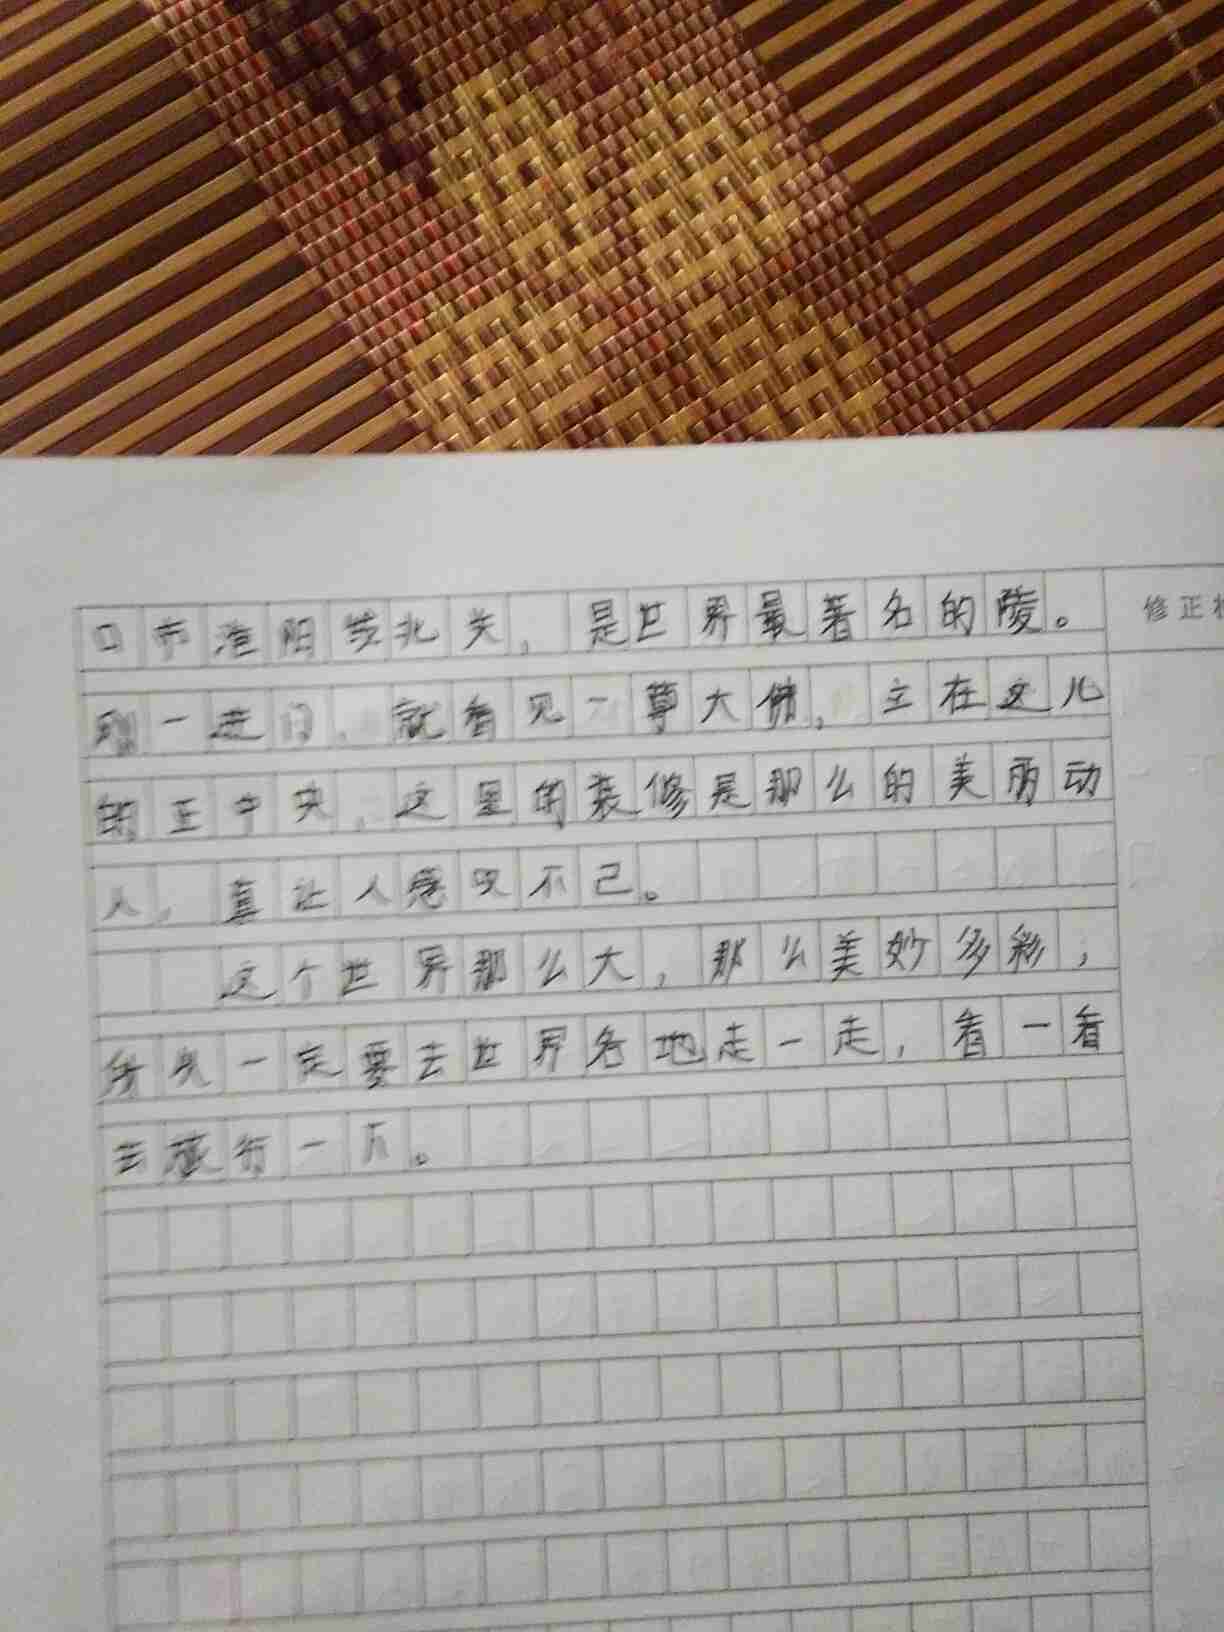 口市淮阳蔡北关，是世界最著名的陵。
修正
刚一进门，就看见一尊大佛，立在这儿
的正中央，这里的装修是那么的美丽动
人，真让人感叹不己。
这个世界那么大，那么美妙多彩，
一定要去世界各地走一走，看一看
去旅行一下。